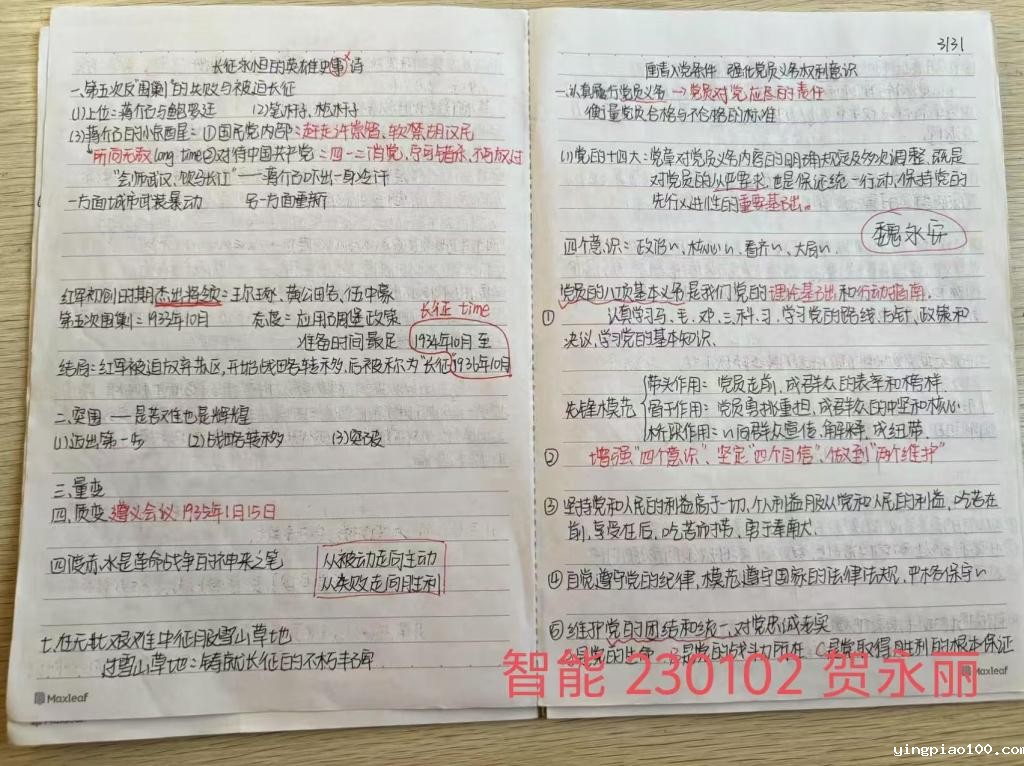 长征永恒的英雄史事诗
一、第五次反“围剿”的失败与被迫长征
(1)上位:蒋介石与鲍罗廷 (2)笔杆子、枪杆子
(3)蒋介石的小京围屋:①国民党内部:赶走许崇智、软禁胡汉民
“所向无敌long time②对待中国共产党:四一二清党、宁可错杀、不可放过
“会师武汉、饮马长江”——蒋介石吓出一身冷汗
一方面城市武装暴动 另一方面重新
红军初创时期杰出将领:王尔琢、黄公略、伍中豪
长征 time
第五次围剿:1933年10月 态度:应用碉堡政策
准备时间最足 1934年10月至
结局:红军被迫放弃苏区,开始战略转移,后被称为“长征”1936年10月
二、突围——是苦难也是辉煌
(1)迈出第一步 (2)战略转移 (3)突破
三、量变
四、质变 遵义会议 1935年1月15日
四渡赤水是革命战争的神来之笔
从被动走向主动
从失败走向胜利
七、在无比艰难中征服雪山草地
过雪山草地:铸就长征的不朽丰碑
Maxleaf
3|3|
重看入党条件 强化党员义务权利意识
一、认真履行党员义务→党员对党应尽的责任
衡量党员合格与不合格的标准
(1)党的十四大:党章对党员义务内容的明确规定及多次调整,既是
对党员的从严要求,也是保证统一行动、保持党的
先行义进性的重要基础。
魏永安
四个意识:政治〃、核心〃、看齐〃、大局〃.
党员的八项基本义务是我们党的理论基础和行动指南.
① 认真学习马、毛、邓、三、科、习,学习党的路线、方针、政策和
决议,学习党的基本知识.
带头作用:党员走前,成群众的表率和榜样.
先锋模范 骨干作用:党员勇挑重担,成群众的中坚和核心
桥梁作用:〃向群众宣传、解释,成纽带.
② 增强“四个意识”、坚定“四个自信”、做到“两个维护”
③ 坚持党和人民的利益高于一切,个人利益服从党和人民的利益,吃苦在
前,享受在后,吃苦耐劳,勇于奉献.
④ 自觉遵守党的纪律,模范遵守国家的法律法规,严格保守〃
⑤ 维护党的团结和统一,对党忠诚老实
是党的生命 是党的战斗力所在 是党取得胜利的根本保证
智能 230102 贺永丽
Maxleaf
yingpiao100.com